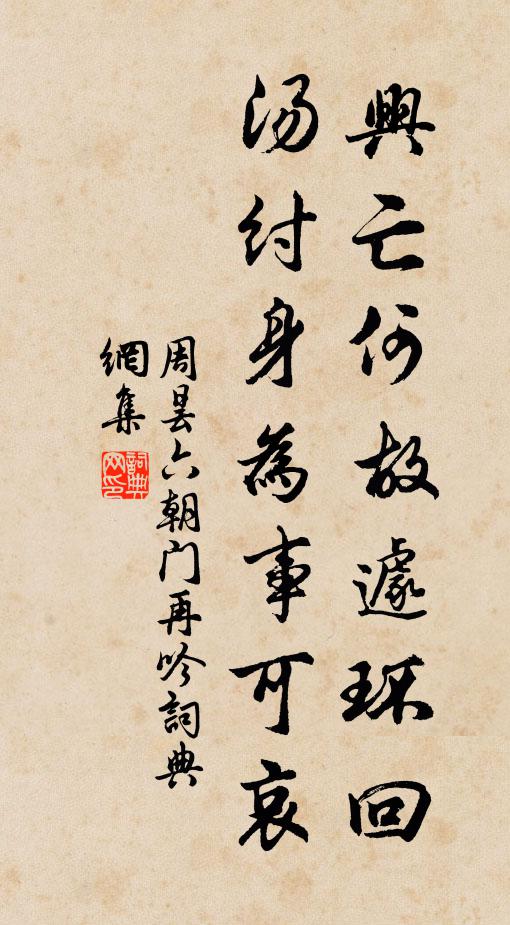 興亡何故遽环回
汤纣身為事可哀
周昙六朝门再吟詞典
網集
詞典網印